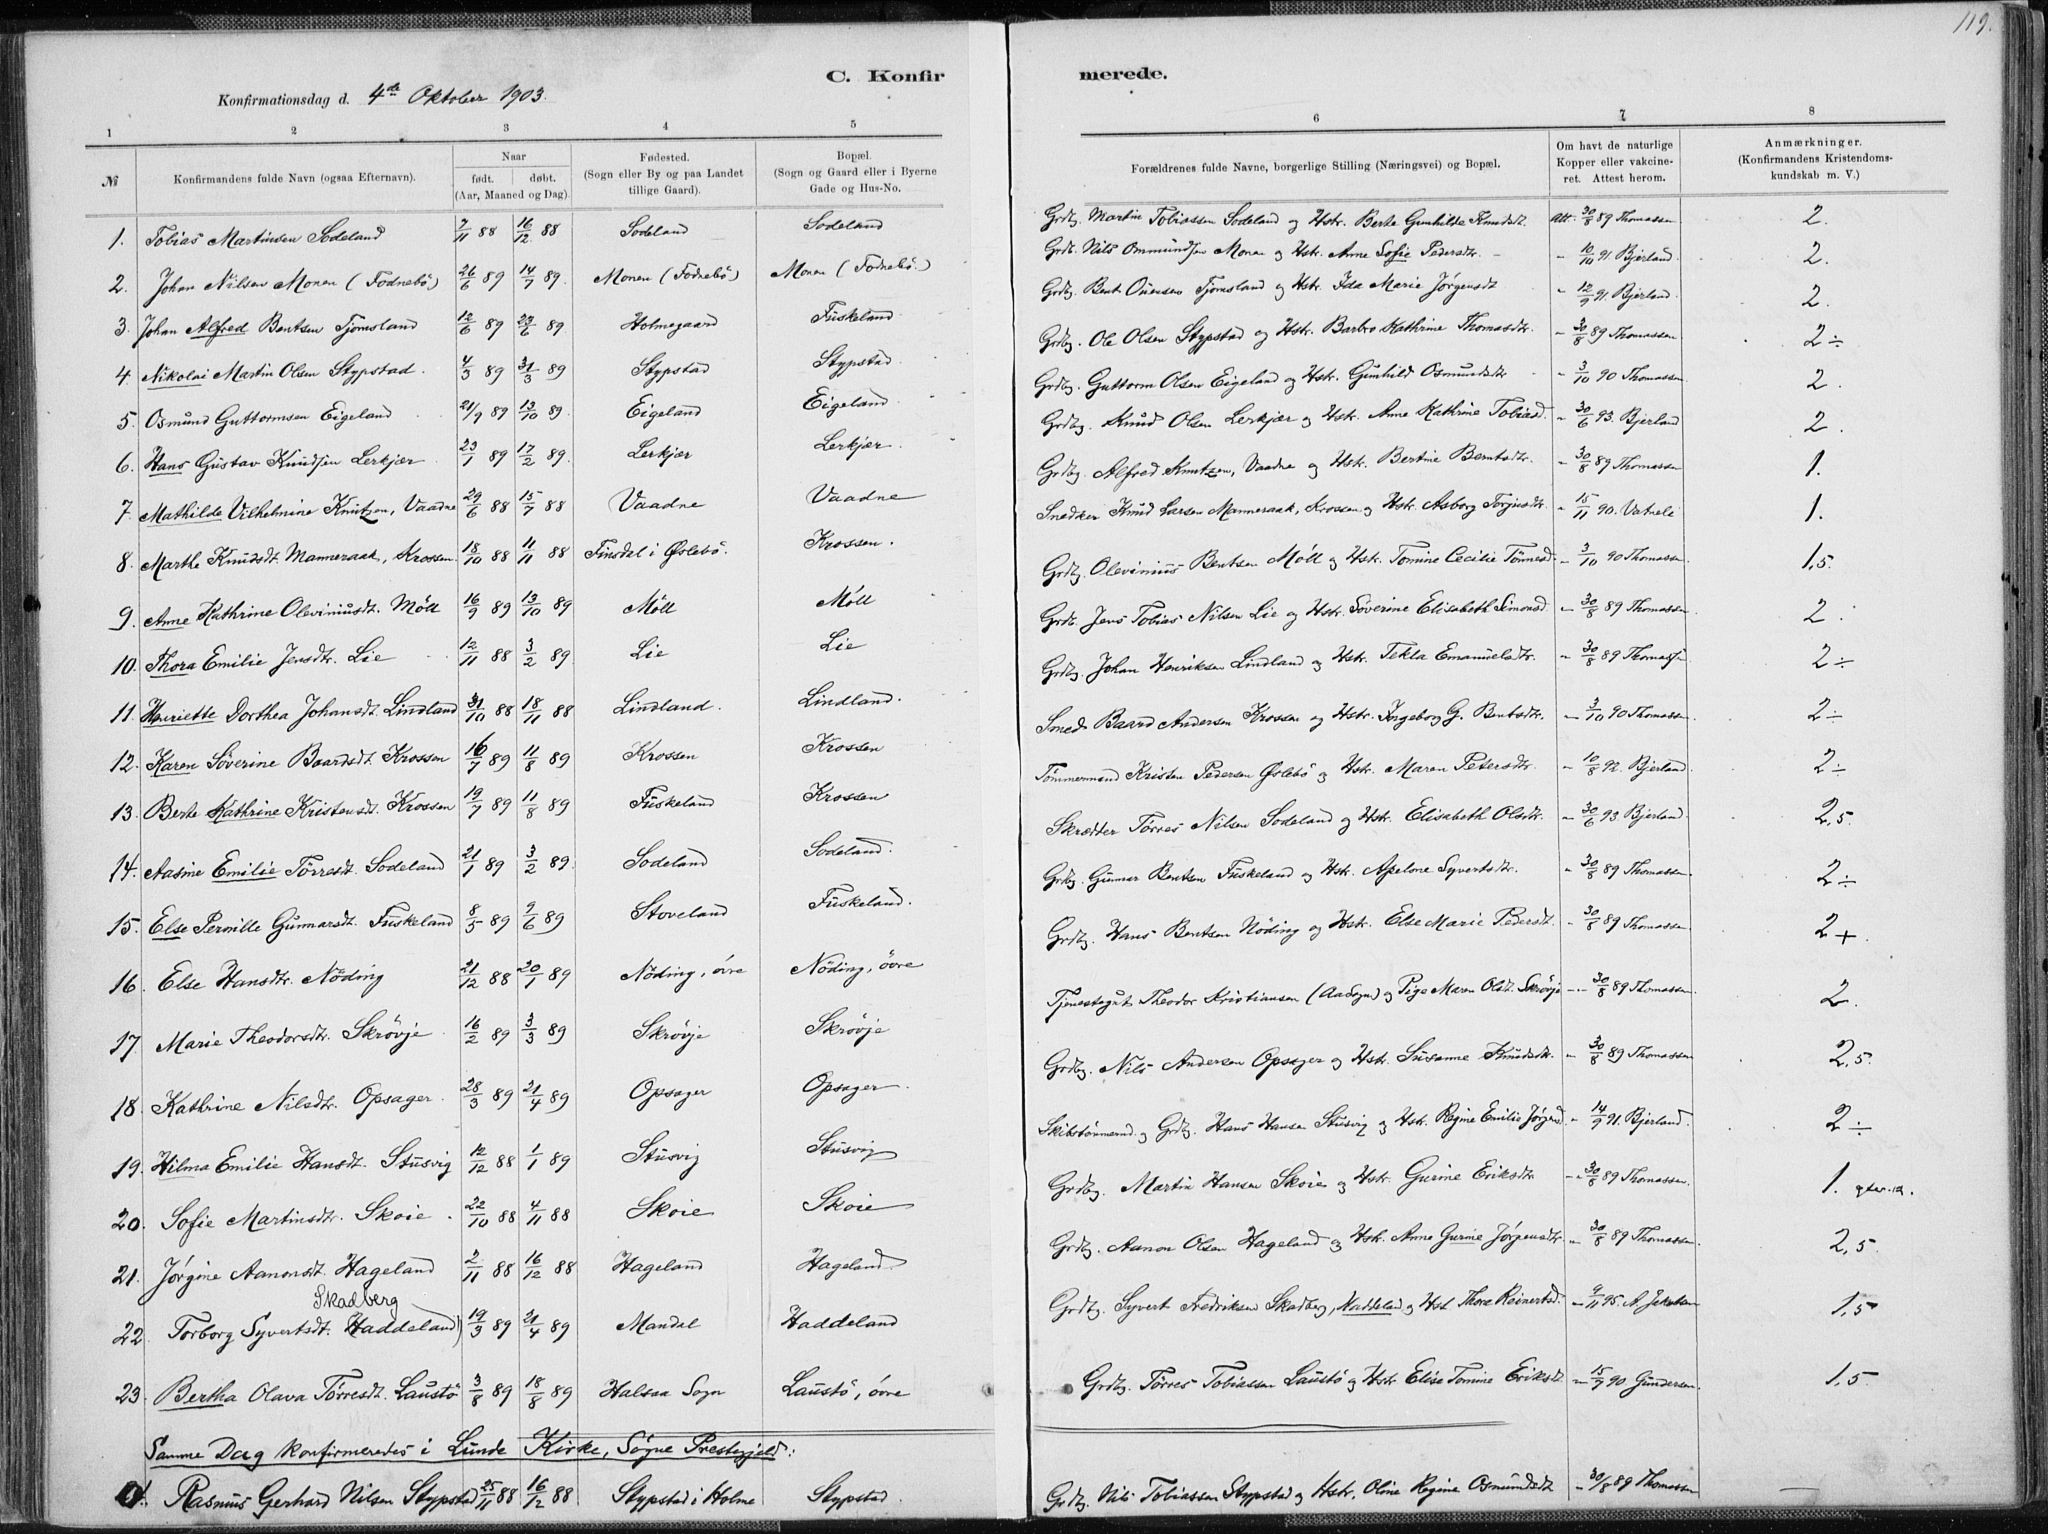 119.
C. Konfir
merede.
Konfirmationsdag d. 4de Oktober 1903.
1 2 3 4 5 6 7 8
№ Konfirmandens fulde Navn (ogsaa Efternavn).
Naar
født. døbt.
(Aar, Maaned og Dag).
Fødested.
(Sogn eller By og paa Landet
tillige Gaard).
Bopæl.
(Sogn og Gaard eller i Byerne
Gade og Hus-No.
Forældrenes fulde Navne, borgerlige Stilling (Næringsvei) og Bopæl.
Om havt de naturlige
Kopper eller vakcine-
ret. Attest herom.
Anmærkninger.
(Konfirmandens Kristendoms-
kundskab m. V.)
1. Tobias Martinsen Sodeland 2/11 88 16/12 88 Sodeland Sodeland Grdbg. Martin Tobiassen Sodeland og Hstr. Berte Gunhilde Knudsdt. Att. 30/8 89 Thomassen 2.
2. Johan Nilsen Monen (Fodnebö) 26/6 89 14/7 89. Monen (Fodnebö) Monen (Fodnebö.) Grdb. Nils Ommundsen Monen og Hstr. Anne Sofie Pedersdtr. - " 10/10 91. Bjerland. 2.
3. Johan Alfred Bentsen Tjomsland 12/6 89 23/6 89 Holmegaard Fuskeland Grdbg. Bent Ouensen Tjomsland og Hstr. Ida Marie Jørgensdt " 12/9 91. Bjerland. 2.
4. Nikolai Martin Olsen Stypstad. 4/3 89 31/3 89 Stypstad Stypstad Grdbg. Ole Olsen Stypstad og Hstr. Barbro Kathrine Thomasdtr. " 30/8 89 Thomassen 2÷
5. Osmund Guttormsen Eigeland 21/9 89 13/10 89. Eigeland Eigeland Grdbg. Guttorm Olsen Eigeland og Hstr. Gunhild Osmundsdtr " 3/10 90 Thomassen 2.
6. Hans Gustav Knudsen Lerkjær 23/1 89 17/2 89. Lerkjær Lerkjær. Grdbg. Knud Olsen Lerkjær og Hstr. Anne Kathrine Tobiasd. " 30/6 93. Bjerland 2.
7. Mathilde Vilhelmine Knutzen, Vaadne 29/6 88 15/7 88 Vaadne Vaadne Grdbg. Alfred Knutzen, Vaadne og Hstr. Bertine Berntsdtr. " 30/8 89 Thomassen 1.
8. Marthe Knudsdt. Manneraak, Krossen 18/10 88 11/11 88 Finsdal i Øslebö. Krossen. Snedker Knud Larsen Manneraak, Krossen og Hstr. Asborg Torjusdtr. " 15/11 90. Vatneli 1.
9. Anne Kathrine Oleviniusdt. Möll 16/9 89 13/10 89 Möll Möll Grdbg. Olevinius Bentsen Möll og Hstr. Tomine Cecilie Tönnesd. " 3/10 90 Thomassen. 1,5.
10. Thora Emilie Jensdtr. Lie 12/11 88 3/2 89. Lie Lie Grdb. Jens Tobias Nilsen Lie og Hstr. Söverine Elisabeth Simonsd. " 30/8 89 Thomassen. 2.
11. Henriette Dorthea Johansdt. Lindland 31/10 88 18/11 88 Lindland. Lindland. Grdbg. Johan Henriksen Lindland og Hstr. Tekla Emanuelsdtr. " 30/8 89 Thomassen 2÷
12. Karen Söverine Baardsdt. Krossen 16/7 89 11/8 89 Krossen Krossen Sned. Baard Andersen Krossen og Hstr. Ingeborg G. Bentsdtr. " 3/10 90 Thomassen. 2÷
13. Berte Kathrine Kristensdt. Krossen 19/7 89 11/8 89 Fuskeland Krossen Tömmermand Kristen Pedersen Øslebö og Hstr. Maren Petersdtr. " 10/8 92. Bjerland. 2÷
14. Aasine Emilie Törresdt. Sodeland 21/1 89 3/2 89. Sodeland Sodeland. Skrædder Törres Nilsen Sodeland og Hstr. Elisabeth Olsdtr. " 30/6 93. Bjerland. 2,5.
15. Else Pernille Gunnarsdt. Fuskeland 8/5 89 9/6 89 Stoveland Fuskeland. Grdbg. Gunnar Bentsen Fuskeland og Hstr. Apelone Syvertsdtr. " 30/8 89 Thomassen. 2÷
16. Else Hansdtr. Nöding 21/12 88 20/1 89 Nöding, övre Nöding, övre Grdbg. Hans Bentsen Nöding og Hstr. Else Marie Pedersdt. " 30/8 89 Thomassen. 2+.
17. Marie Theodorsdtr. Skrövje 16/2 89 3/3 89 Skrövje Skrövje Tjenestegut Theodor Kristiansen (Aa Sogn) og Pige Maren Olsdt. Skrövje " 30/8 89 Thomassen. 2.
18. Kathrine Nilsdtr. Opsager. 28/3 89 21/4 89 Opsager Opsager. Grdbg. Nils Andersen Opsager og Hstr. Susanne Knudsdtr. " 30/8 89 Thomassen 2,5.
19. Hilma Emilie Hansdt. Stusvig 12/12 88 1/1 89 Stusvig Stusvig Skibstömmermd. og Grdbg. Hans Hansen Stusvig og Hstr. Regine Emilie Jörgensd. " 14/9 91. Bjerland. 2÷
20. Sofie Martinsdtr. Skoie. 22/10 88 4/11 88 Skoie Skoie Grdbg. Martin Hansen Skoie og Hstr. Gurine Eriksdtr. " 30/8 89 Thomassen. 1.
21. Jörgine Aanonsdt. Hageland 2/11 88 16/12 88 Hageland Hageland Grdbg. Aanon Olsen Hageland og Hstr. Anne Gurine Jörgensdtr. " 30/8 89 Thomassen. 2,5.
Skadberg
22. Torborg Syvertsdt. Haddeland) 19/3 89 21/4 89 Mandal Haddeland Grdbg. Syvert Fredriksen Skadberg, Haddeland og Hst. Thora Reinertsd. " 9/11 95. A. Jakobsen 1,5
23. Bertha Olava Törresdt. Laustö 3/8 89 18/8 89 Halsaa Sogn Laustö, övre Grdbg. Törres Tobiassen Laustö og Hstr. Elise Tomine Eriksdt. " 15/9 90. Gundersen. 1,5
Samme Dag konfirmeredes i Lunde Kirke, Sögne Prestegjeld:
Rasmus Gerhard Nilsen Stypstad 25/11 88 16/12 88 Stypstad i Holme Stypstad. Grdbg. Nils Tobiassen Stypstad og Hstr. Oline Regine Osmundsdt. " 30/8 89 Thomassen —